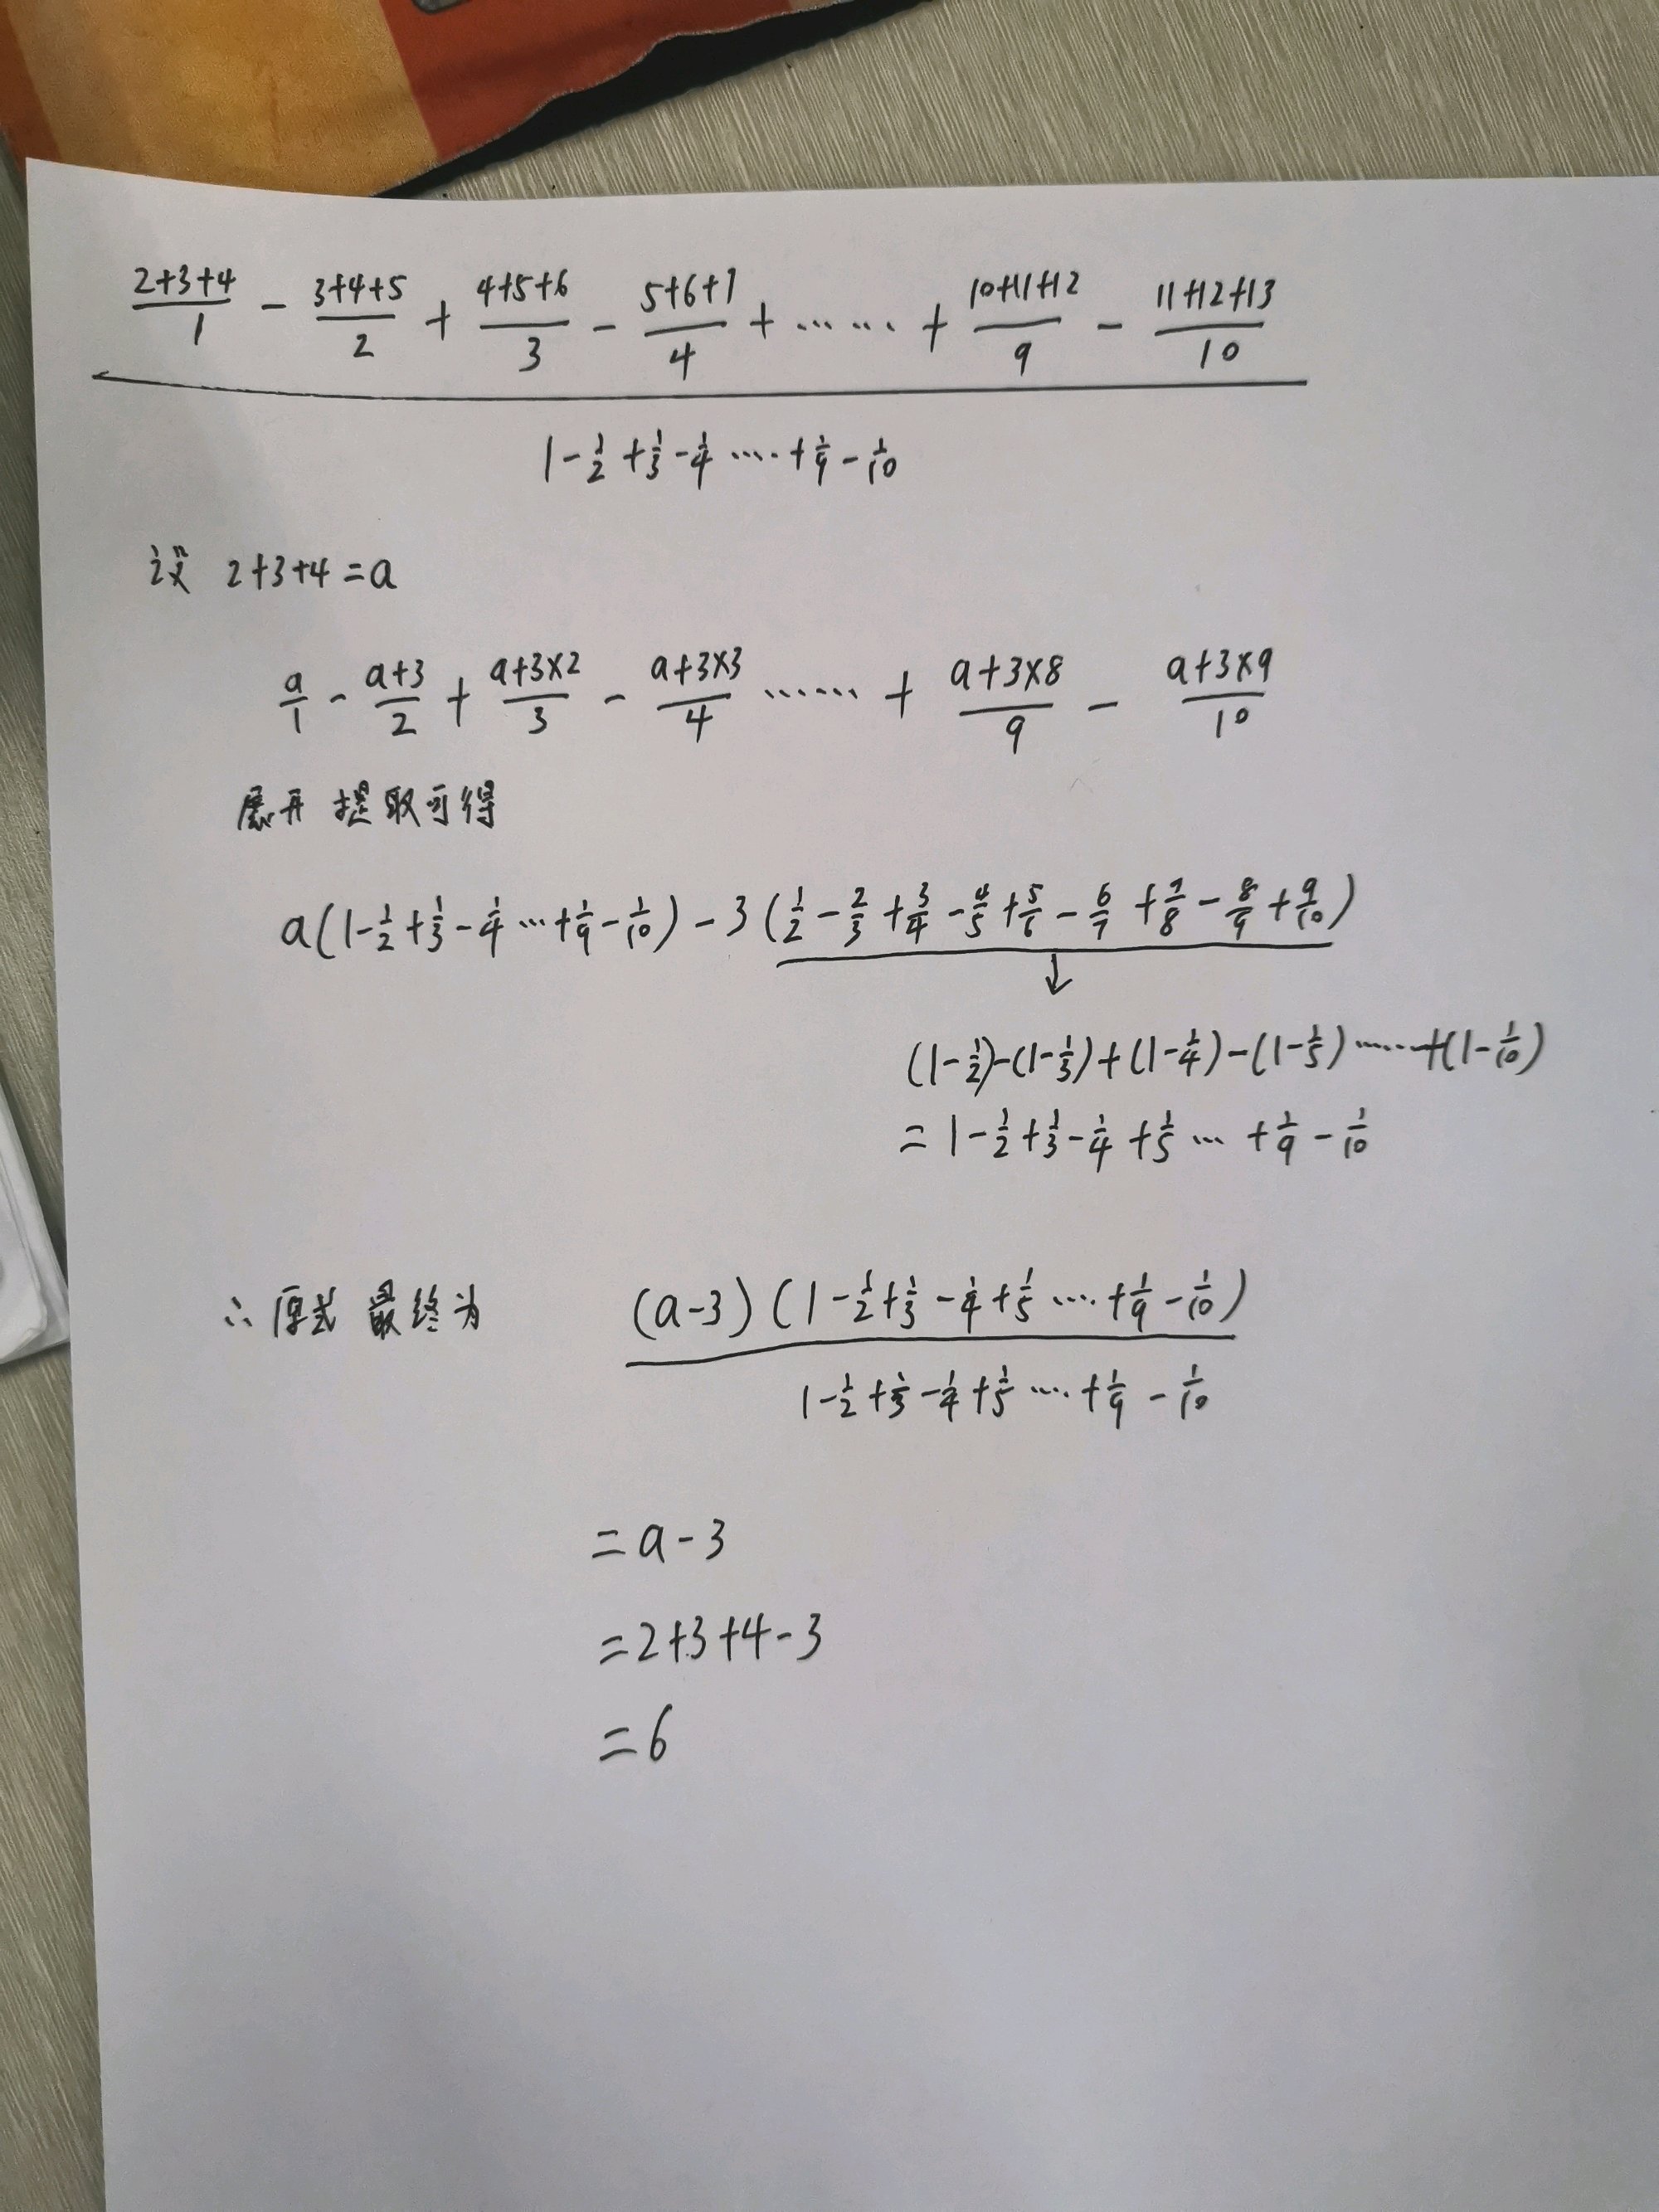 (2+3+4)/1 - (3+4+5)/2 + (4+5+6)/3 - (5+6+7)/4 + …… + (10+11+12)/9 - (11+12+13)/10
1 - 1/2 + 1/3 - 1/4 …… + 1/9 - 1/10
设 2+3+4=a
a/1 - (a+3)/2 + (a+3×2)/3 - (a+3×3)/4 …… + (a+3×8)/9 - (a+3×9)/10
展开提取可得
a(1 - 1/2 + 1/3 - 1/4 … + 1/9 - 1/10) - 3(1/2 - 2/3 + 3/4 - 4/5 + 5/6 - 6/7 + 7/8 - 8/9 + 9/10)
↓
(1 - 1/2) - (1 - 1/3) + (1 - 1/4) - (1 - 1/5) …… + (1 - 1/10)
= 1 - 1/2 + 1/3 - 1/4 + 1/5 … + 1/9 - 1/10
∴ 原式 最终为 (a-3)(1 - 1/2 + 1/3 - 1/4 + 1/5 …… + 1/9 - 1/10)
1 - 1/2 + 1/3 - 1/4 + 1/5 …… + 1/9 - 1/10
= a-3
= 2+3+4-3
= 6